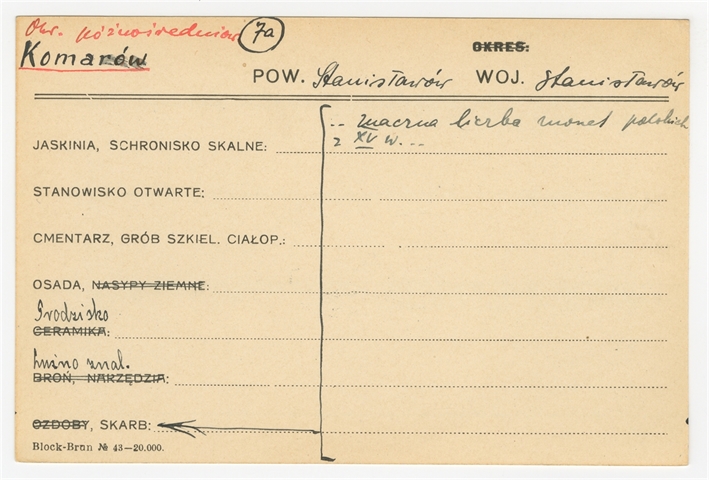 Okr. późnośredniow 7a
Komarów
OKRES:
POW. Stanisławów WOJ. Stanisławów
.. znaczna liczba monet polskich
z XV w. ...
JASKINIA, SCHRONISKO SKALNE:
STANOWISKO OTWARTE:
CMENTARZ, GRÓB SZKIEL. CIAŁOP.:
OSADA, NASYPY ZIEMNE:
Grodzisko
CERAMIKA:
Luźno znal.
BROŃ, NARZĘDZIA:
OZDOBY, SKARB:
Block-Brun № 43—20.000.